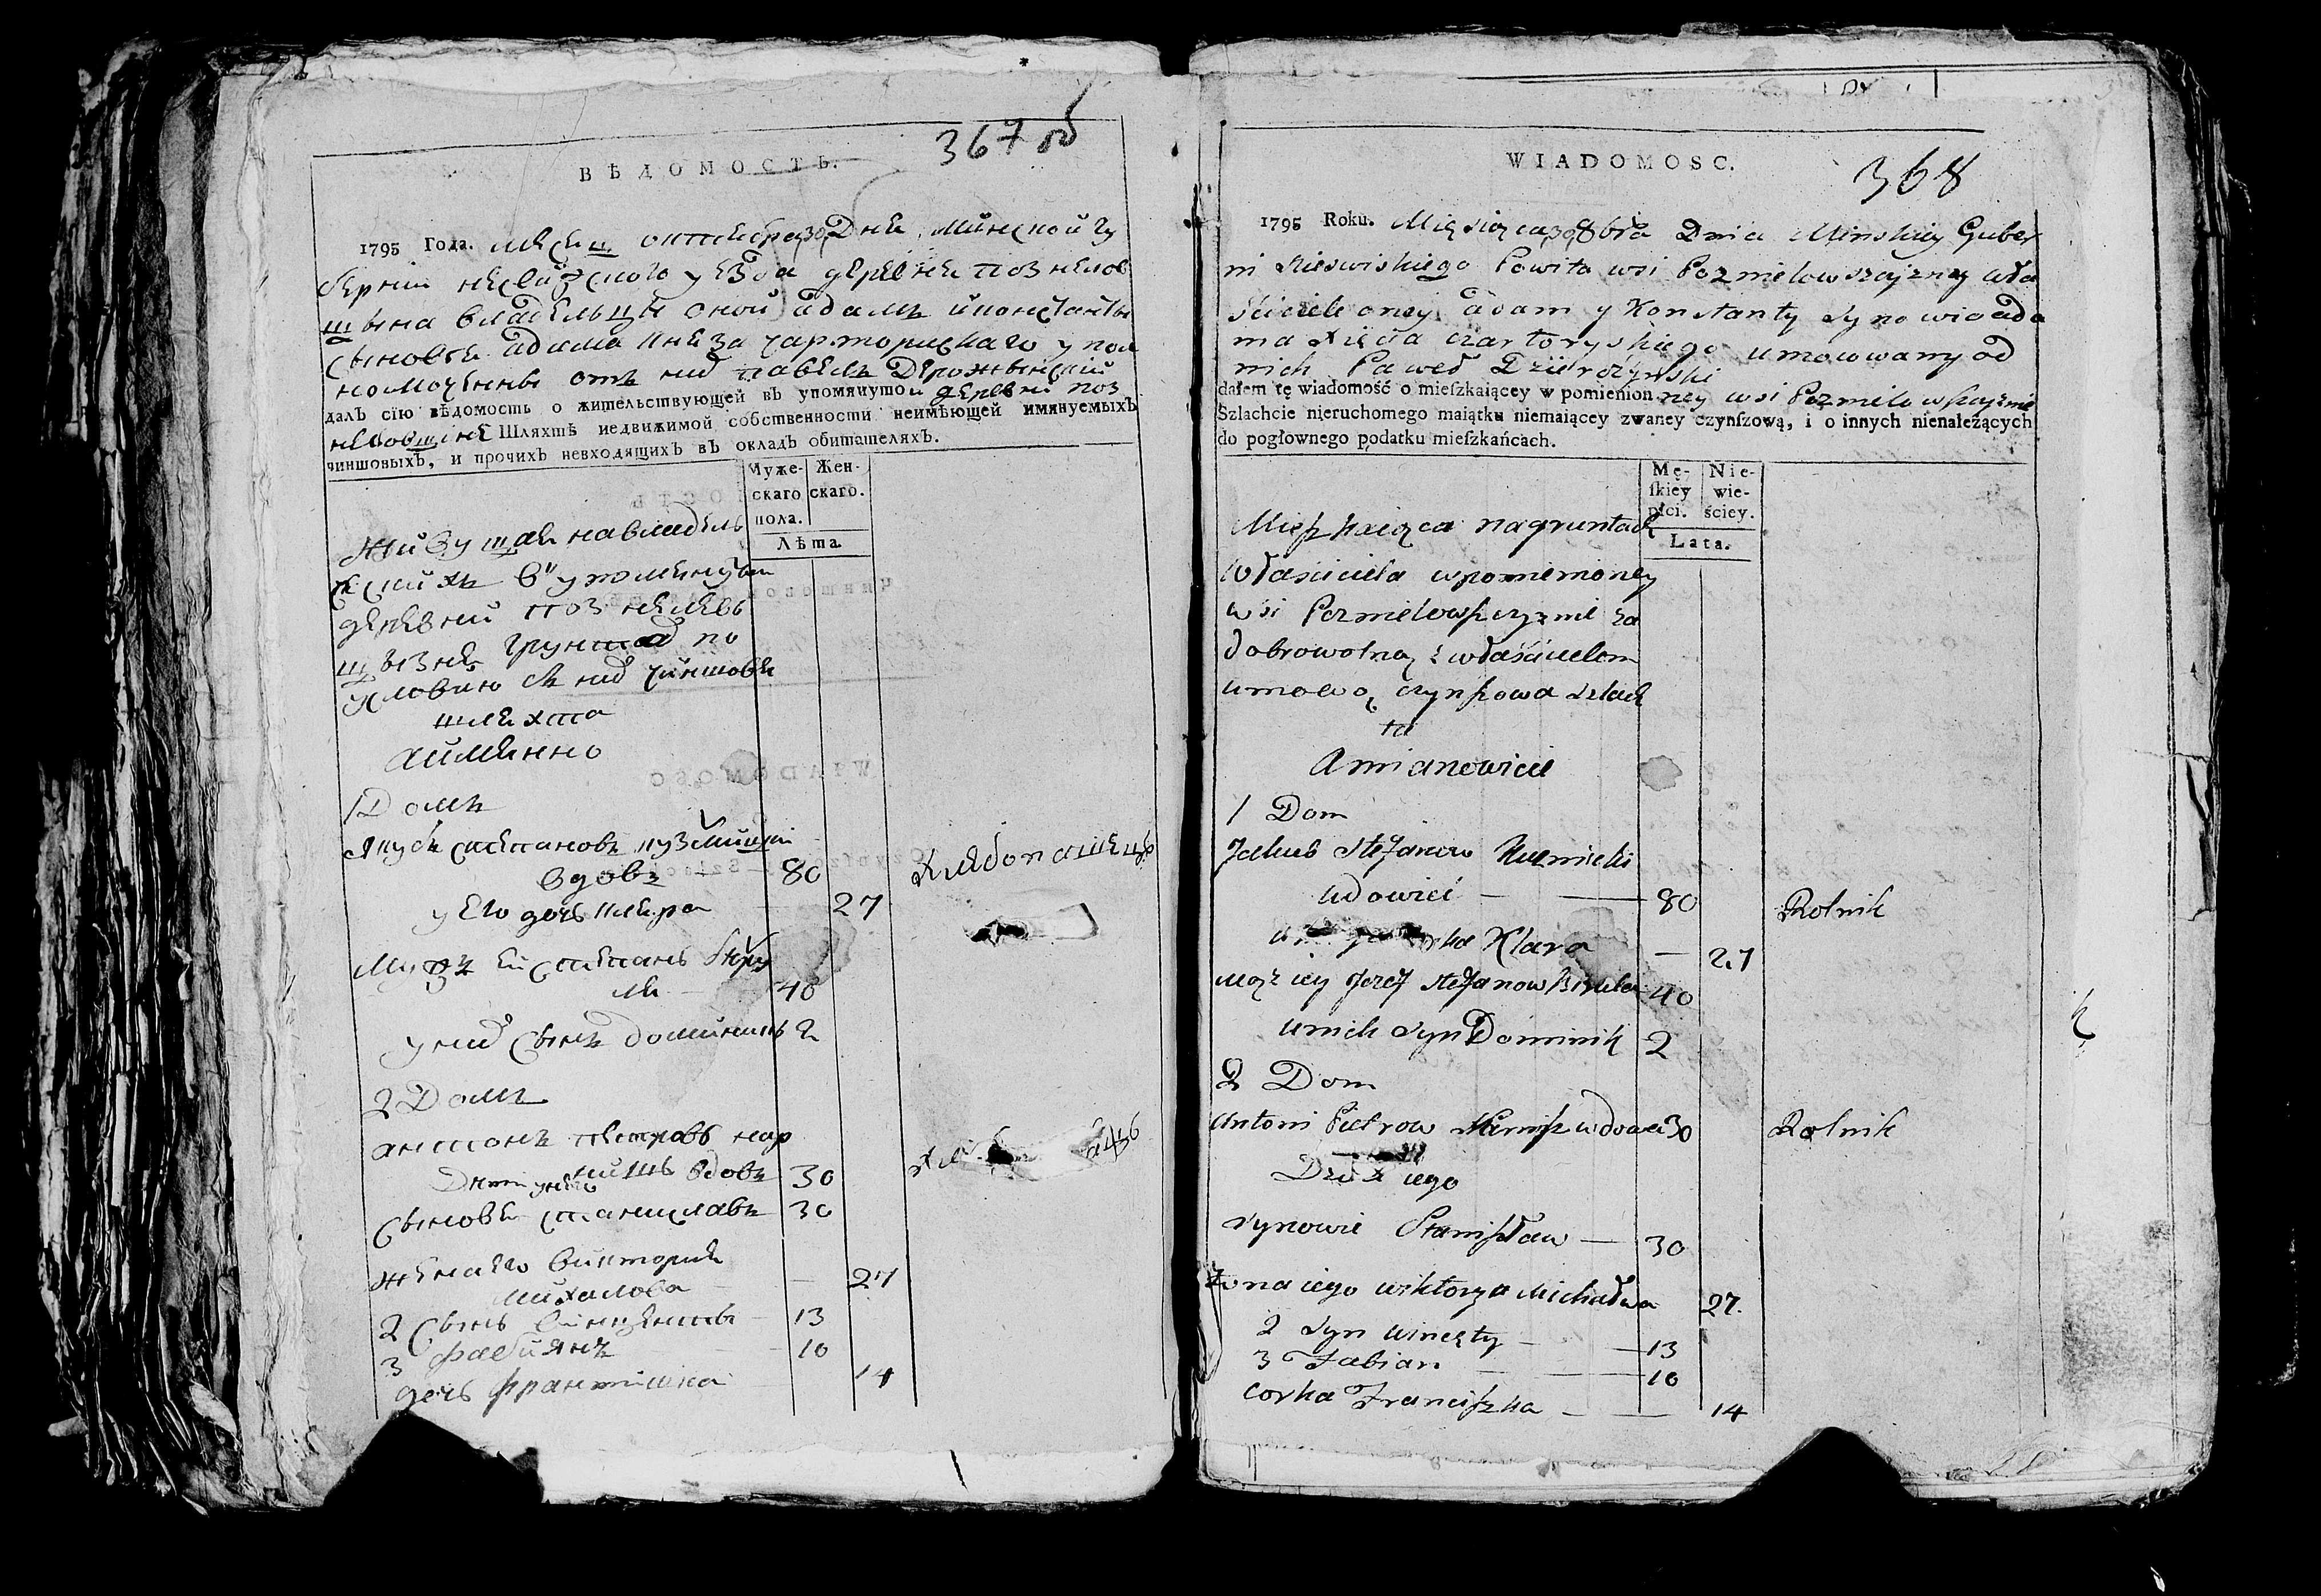 367 об
ВѢДОМОСТЬ.
1795 Года. месец октебра 30 Дня Минской гу
бернии несвижского уезда деревне познелов
щына владельцы оной адамъ и константы
сыновя адама князя чарторискаго упол
номоченны отъ них павелъ Дерожынский
далъ сію вѣдомость о жительствующей въ упомянутой деревни поз
неловщине Шляхтѣ недвижимой собственности неимѣющей имянуемыхъ
чиншовыхъ, и прочихъ невходящихъ въ окладъ обитателяхъ.
Муже-скаго пола. Жен-скаго.
Лѣта
Живущая на владель
ческихъ в упоменутои
деревни познеловь
щызне грунтах по
условию съ них чиншовая
шляхта
аимянно
1 Домъ
Якубъ степановъ кузмицки
вдовъ 80 Хлебопашецъ
у его дочь клара 27
Мужъ ей степань
40
у них сынъ доминикъ 2
2 Домъ
антонъ петровъ кар
вдовъ 30
Дети у него
Сыновя станиславъ 30
жена его виктория
михалова 27
2 сынъ винцентъ 13
3 фабиянъ 10
дочь франтишка 14
368
WIADOMOSC.
1795 Roku. Miesiąca 30 8bra Dnia Minskiey Guber
ni Nieswiskiego Powitu wsi Poznielowszczyzny wła
sciciele oney adam y Konstanty synowie ada
ma Xięcia Czartoryskiego umocowany od
nich Paweł Dzierożynski
dałem tę wiadomość o mieſzkaiącey w pomienionney wsi Poznielowszczyznie
Szlachcie nieruchomego maiątku niemaiącey zwaney czynſzową, i o innych nienależących
do pogłownego podatku mieſzkańcach.
Mę-ſkiey płci. Nie-wie-ściey.
Lata.
Mieszkaiąca na gruntach
właściciela wpomienioney
wsi Poznielowszczyznie za
dobrowolną z właścicielem
umową czynszowa szlach
ta
a mianowicie
1 Dom
Jakub Stefanow Kuzmicki
wdowiec 80 Rolnik
Klara 27
mąż iey Jozef Stefanow 40
u nich syn Dominik 2
2 Dom
Antoni Piotrow wdowiec 30 Rolnik
Dzieci iego
synowie Stanisław 30
żona iego wiktorya Michałowa 27.
2 syn wincęty 13
3 Fabian 10
corka Franciszka 14